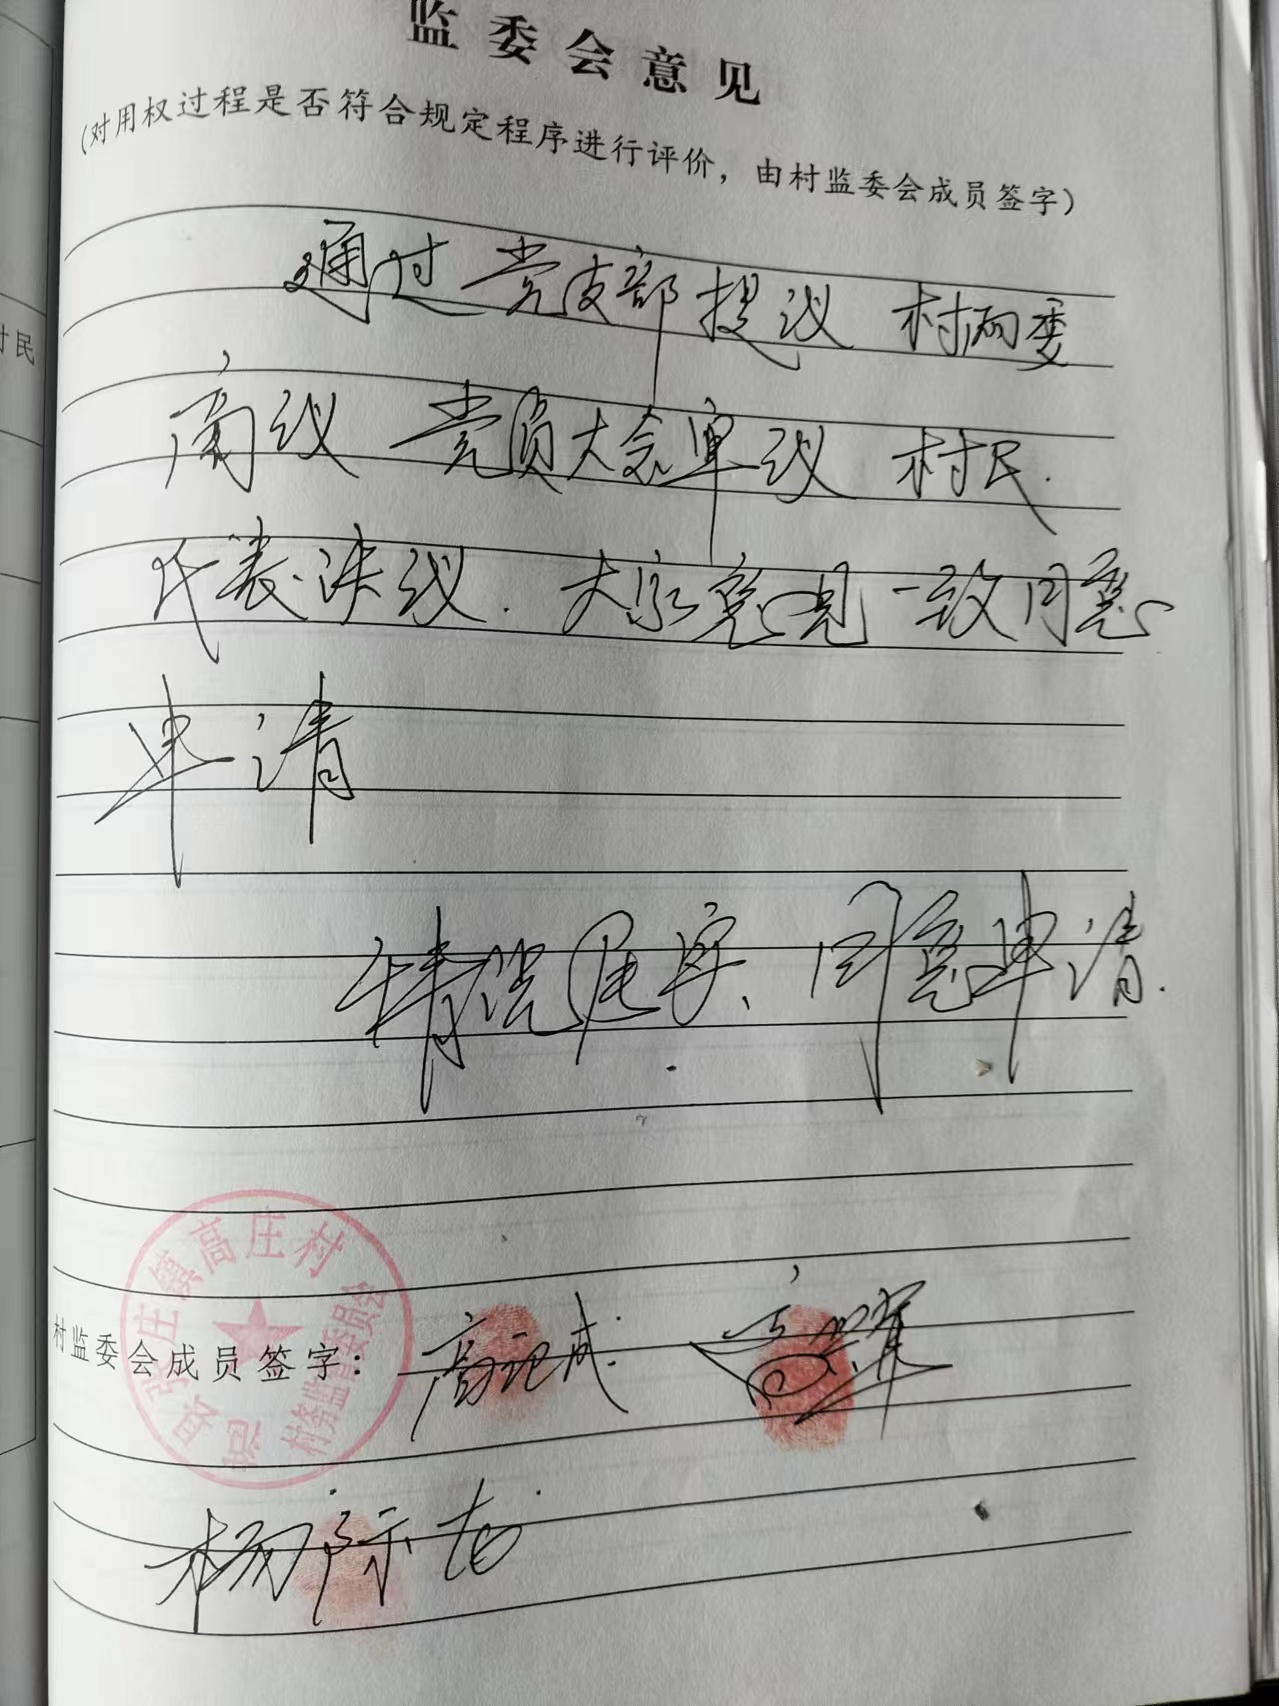 监委会意见
（对用权过程是否符合规定程序进行评价，由村监委会成员签字）
通过党支部提议 村两委
商议 党员大会审议 村民
代表决议. 大家意见一致同意
申请
情况属实、同意申请.
村民
庄镇高庄村
村务监督委员会
村监委会成员签字：高记成
杨际志